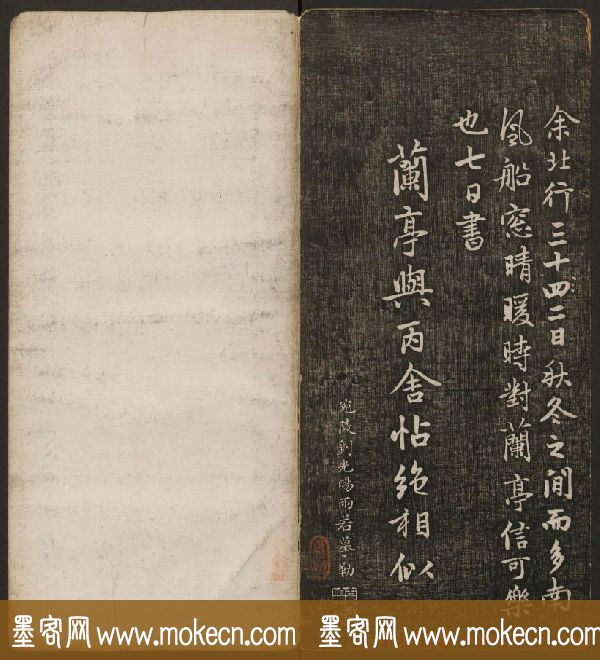 余北行三十四二日秋冬之間而多南
風船窓晴暖時對蘭亭信可樂
也七日書
蘭亭與丙舍帖絶相似
宛陵劉光暘雨若摹勒
墨客网 www.mokecn.com 墨客网 www.mokecn.com